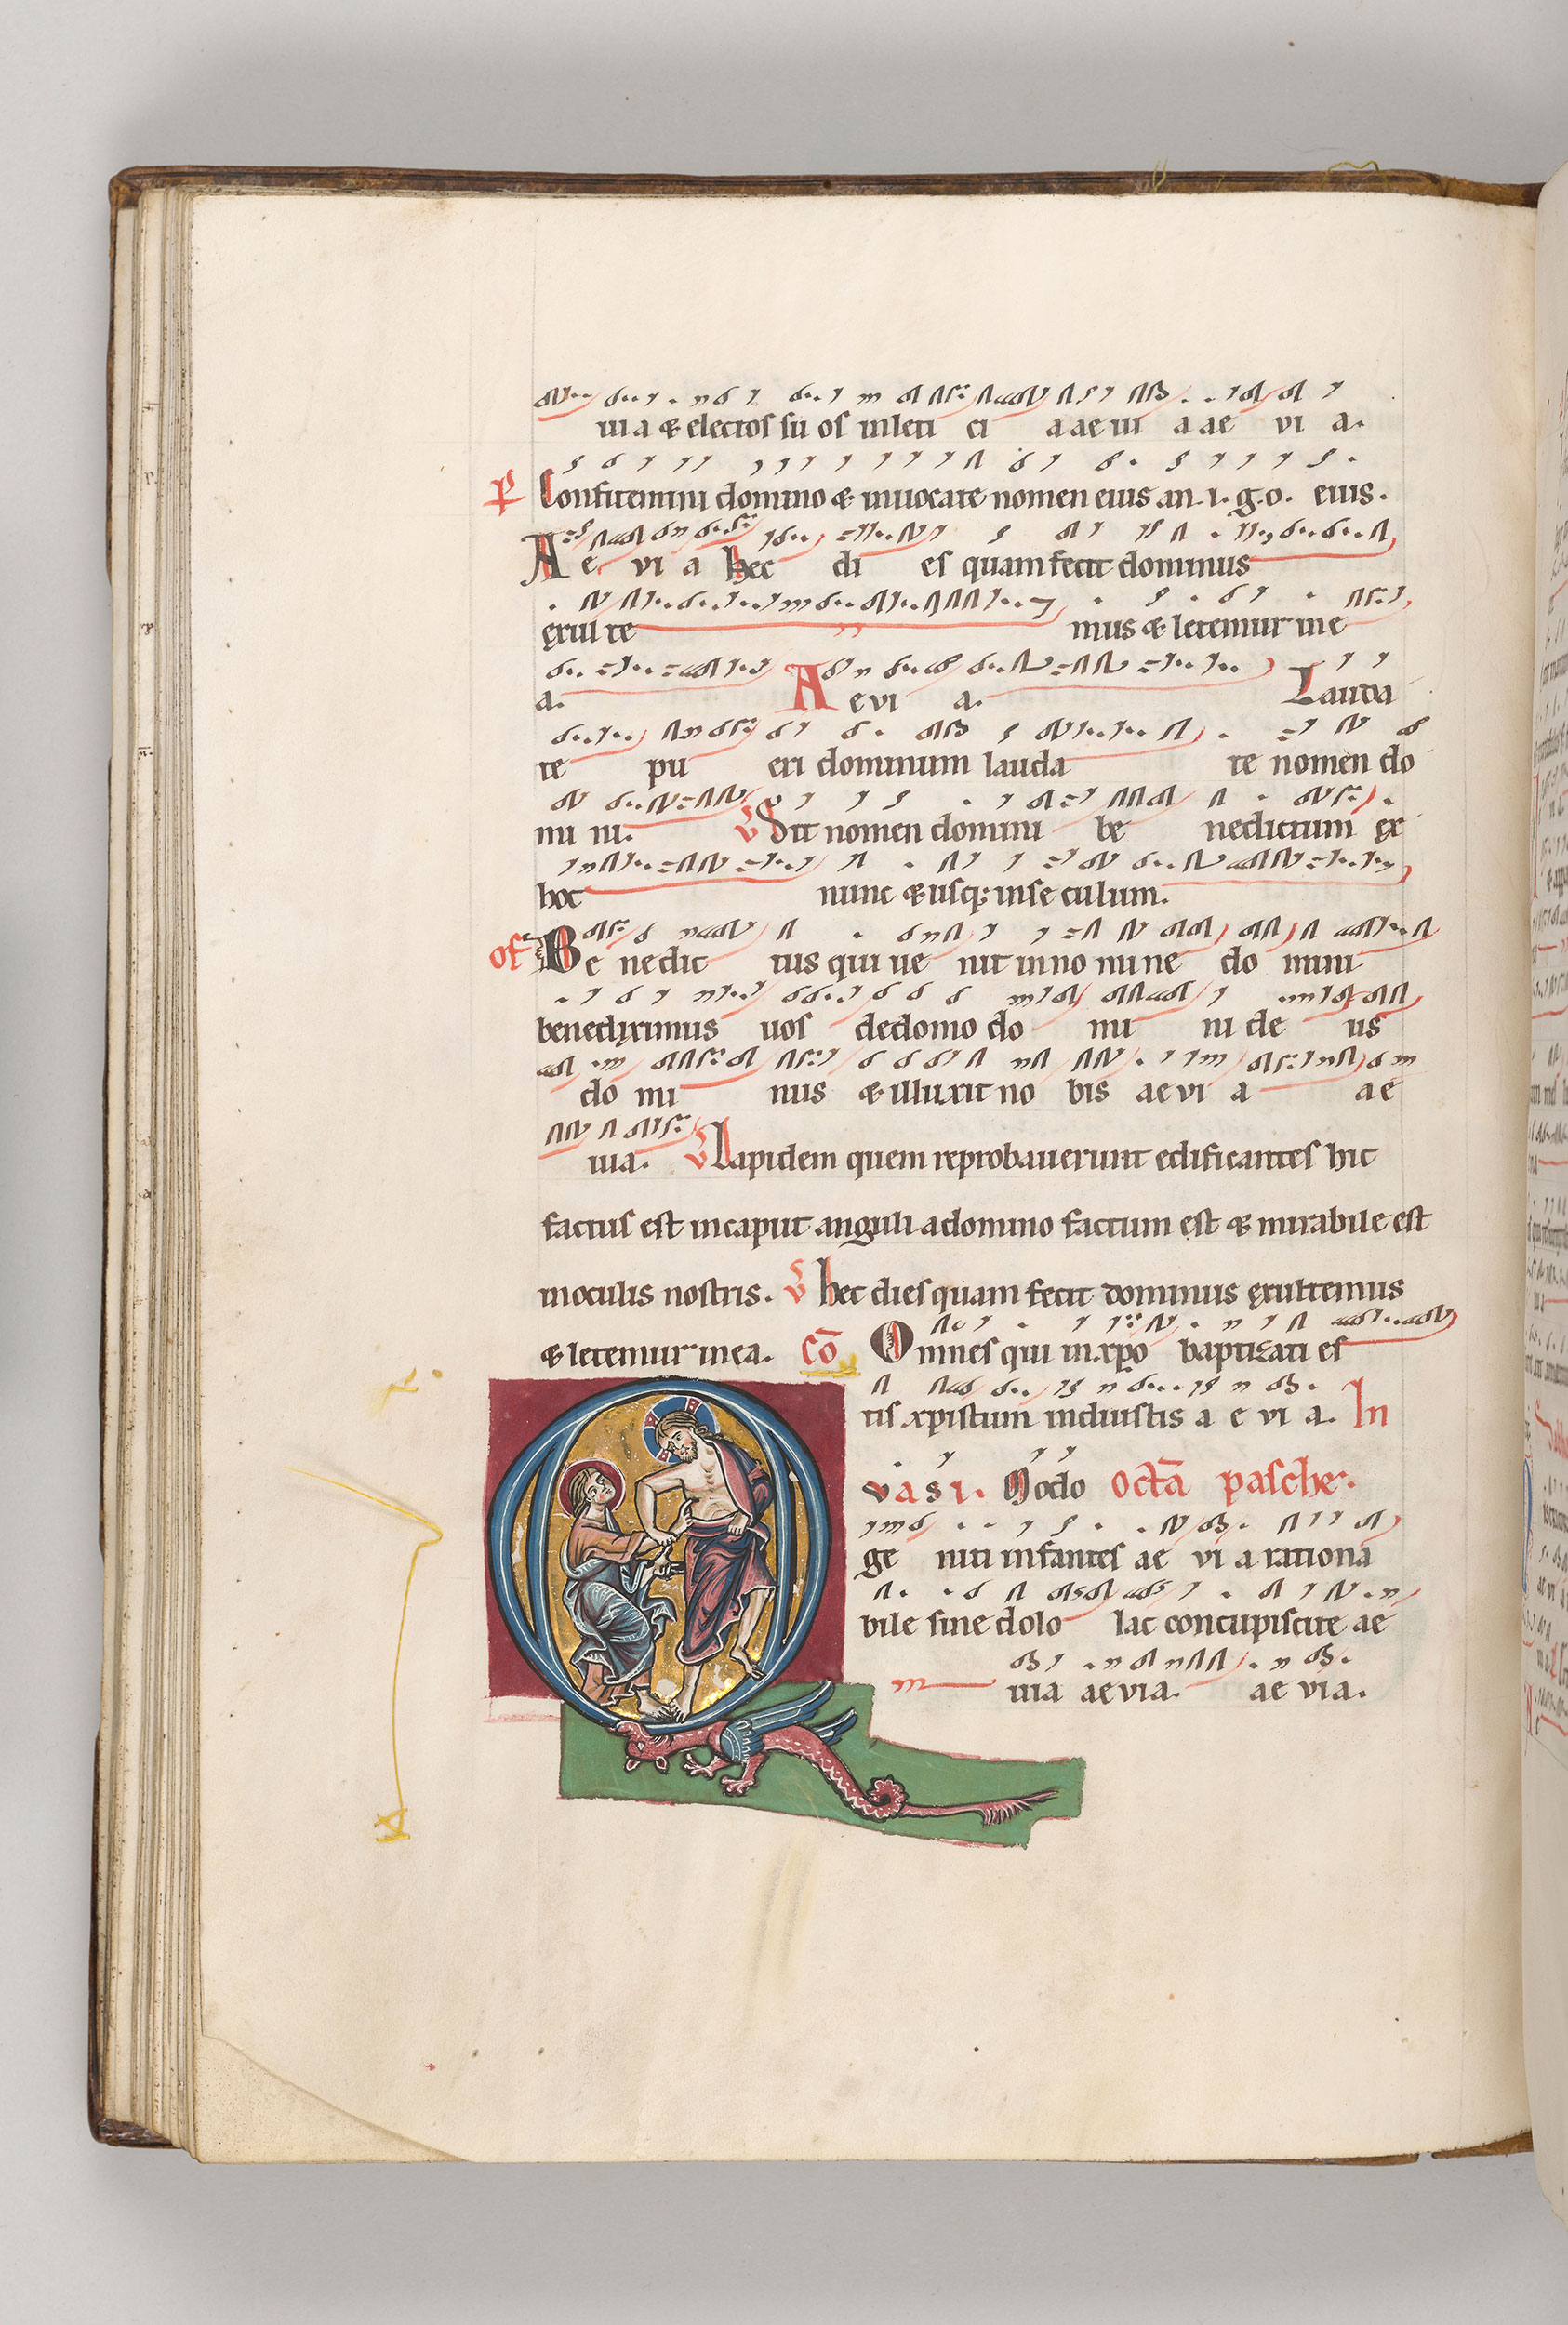 uia & electos su os inleti ci a ae ui a ae vi a.
P Confitemini domino & inuocate nomen eius an. i. g. o. eius.
A e vi a hec di es quam fecit dominus
exul te mus & letemur in e
a. A e vi a. Lauda
te pu eri dominum lauda te nomen do
mi ni. V Sit nomen domini be nedictum ex
hoc nunc & usq; inse culum.
of Be nedic tus qui ue nit in no mi ne do mini
benediximus uos dedomo do mi ni de us
do mi nus & illuxit no bis ae vi a ae
uia. V Lapidem quem reprobauerunt edificantes hic
factus est incaput anguli adomino factum est & mirabile est
inoculis nostris. V hec dies quam fecit dominus exultemus
& letemur in ea. Cō Omnes qui in xpo baptizati es
tis xpistum induistis a e vi a. In
vasi. Modo octā pasche.
ge niti infantes ae vi a rationa
bile sine dolo lac concupiscite ae
uia aevia. ae via.